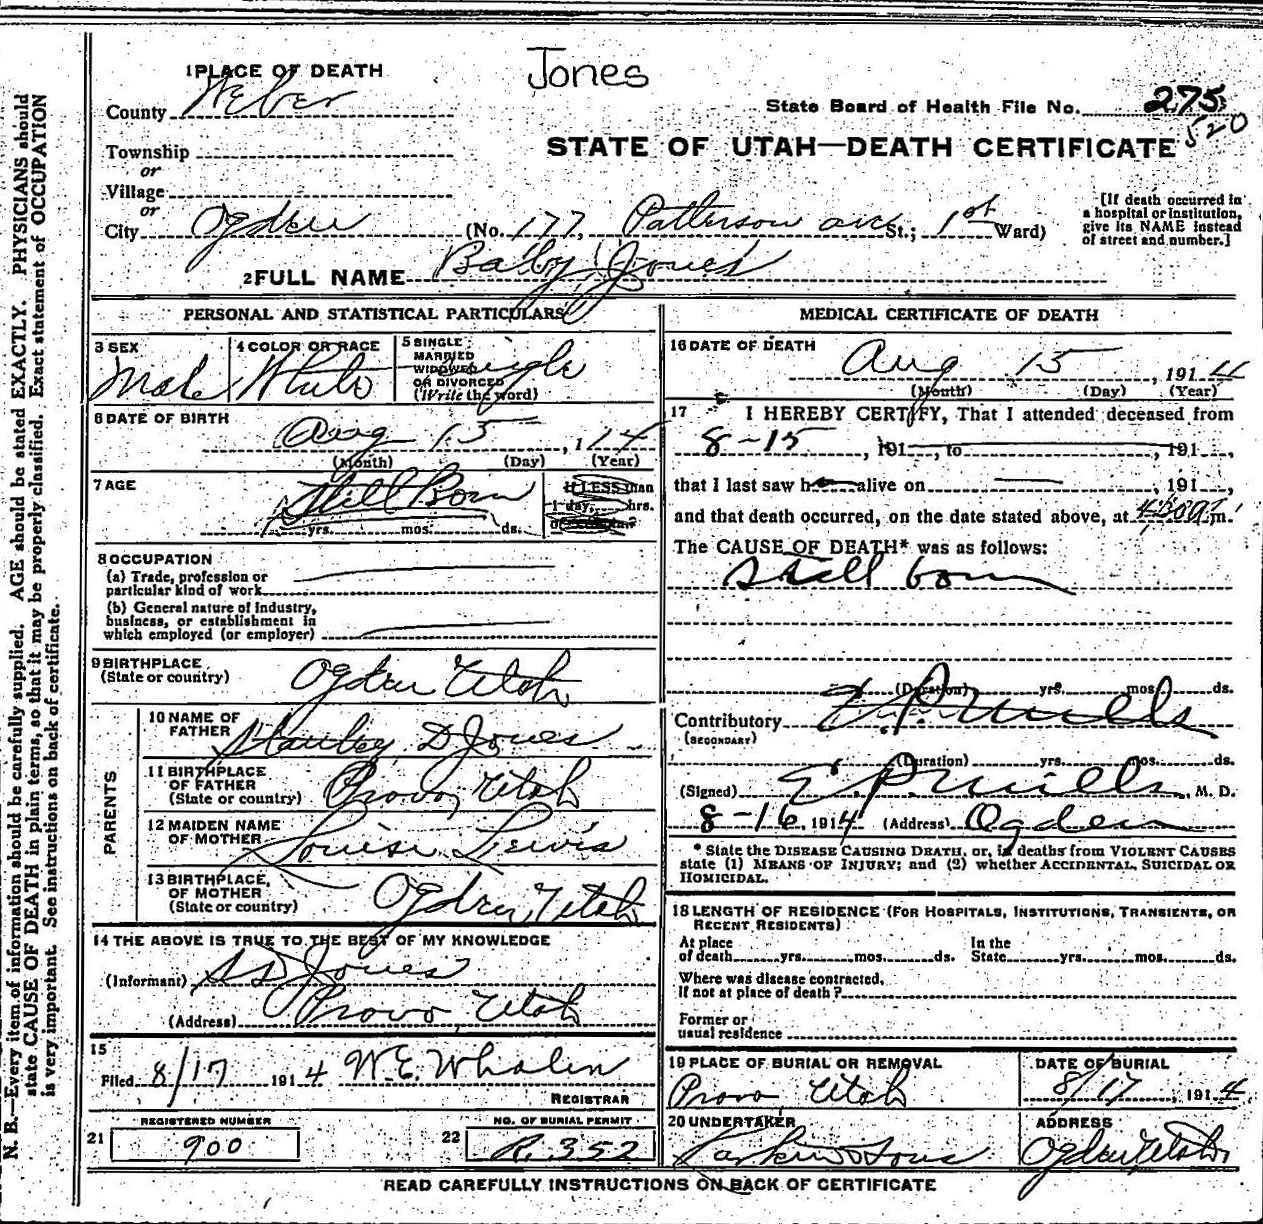 Jones
1 PLACE OF DEATH
County Weber
State Board of Health File No. 275
520
Township
or
STATE OF UTAH—DEATH CERTIFICATE
Village
or
City Ogden (No. 177, Patterson ave St.; 1st Ward)
[If death occurred in
a hospital or institution,
give its NAME instead
of street and number.]
2 FULL NAME Baby Jones
PERSONAL AND STATISTICAL PARTICULARS
3 SEX
Male
4 COLOR OR RACE
White
5 SINGLE
MARRIED
WIDOWED
OR DIVORCED
(Write the word)
Single
6 DATE OF BIRTH
Aug 15, 1 14
(Month) (Day) (Year)
7 AGE
Still Born
yrs. mos. ds.
If LESS than
1 day, hrs.
8 OCCUPATION
(a) Trade, profession or
particular kind of work
(b) General nature of industry,
business, or establishment in
which employed (or employer)
9 BIRTHPLACE
(State or country)
Ogden Utah
PARENTS
10 NAME OF
FATHER
Stanley D Jones
11 BIRTHPLACE
OF FATHER
(State or country)
Provo, Utah
12 MAIDEN NAME
OF MOTHER
Louise Lewis
13 BIRTHPLACE,
OF MOTHER
(State or country)
Ogden, Utah
14 THE ABOVE IS TRUE TO THE BEST OF MY KNOWLEDGE
(Informant) S D Jones
(Address) Provo, Utah
15
Filed 8/17 1914 W. E. Whalen
REGISTRAR
REGISTERED NUMBER
21 900
NO. OF BURIAL PERMIT
22 R. 352
MEDICAL CERTIFICATE OF DEATH
16 DATE OF DEATH
Aug 15, 1914
(Month) (Day) (Year)
17 I HEREBY CERTIFY, That I attended deceased from
8-15, 191 , to , 191 ,
that I last saw h alive on , 191 ,
and that death occurred, on the date stated above, at m.
The CAUSE OF DEATH* was as follows:
Still born
(Duration) yrs. mos. ds.
Contributory E. P. Mills
(SECONDARY)
(Duration) yrs. mos. ds.
(Signed) E. P. Mills, M. D.
8-16, 1914 (Address) Ogden
* State the DISEASE CAUSING DEATH, or, in deaths from VIOLENT CAUSES
state (1) MEANS OF INJURY; and (2) whether ACCIDENTAL, SUICIDAL OR
HOMICIDAL.
18 LENGTH OF RESIDENCE (FOR HOSPITALS, INSTITUTIONS, TRANSIENTS, OR
RECENT RESIDENTS)
At place
of death yrs. mos. ds.
In the
State yrs. mos. ds.
Where was disease contracted,
If not at place of death?
Former or
usual residence
19 PLACE OF BURIAL OR REMOVAL
Provo, Utah
DATE OF BURIAL
8/17, 1914
20 UNDERTAKER
Larkin & Sons
ADDRESS
Ogden, Utah
READ CAREFULLY INSTRUCTIONS ON BACK OF CERTIFICATE
N. B.—Every item of information should be carefully supplied. AGE should be stated EXACTLY. PHYSICIANS should
state CAUSE OF DEATH in plain terms, so that it may be properly classified. Exact statement of OCCUPATION
is very important. See instructions on back of certificate.